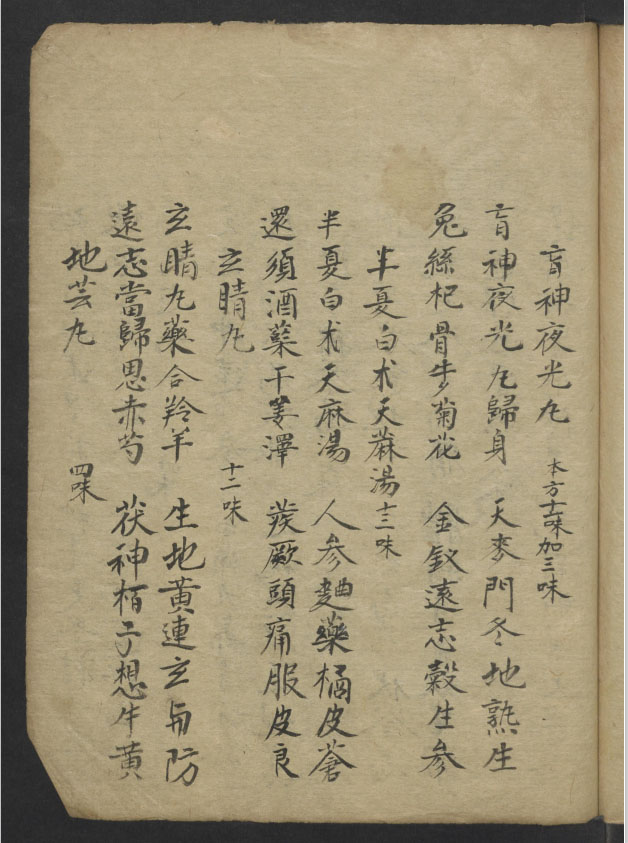 盲神夜光丸 本方十二味加三味
盲神夜光丸歸身 天麥門冬地熟生
兔絲杞骨牛菊花 金釵遠志穀生參
半夏白朮天蔴湯 十三味
半夏白朮天麻湯 人參麯藥橘皮蒼
還須酒蘗干姜澤 痰厥頭痛服皮良
立睛丸 十二味
立睛丸藥合羚羊 生地黃連立與防
遠志當歸思赤芍 茯神栢子想牛黃
地芸丸 四味